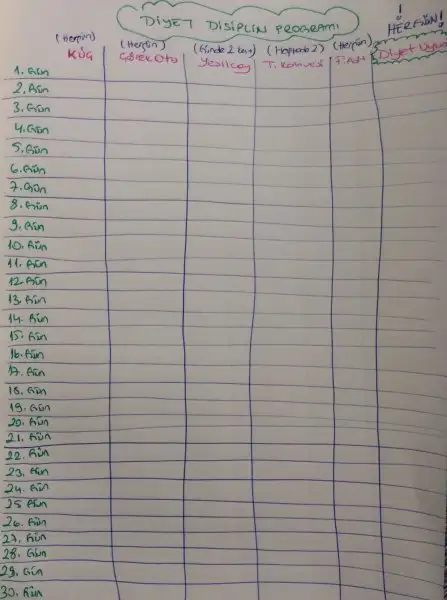 DİYET DİSİPLİN PROGRAMI
! HERGÜN!
(Hergün) (Hergün) (Günde 2 kez) (Haftada 2) (Hergün)
KÜÇ Çörek Otu Yeşilçay T. Kahvesi Diyet
1. Gün
2. Gün
3. Gün
4. Gün
5. Gün
6. Gün
7. Gün
8. Gün
9. Gün
10. Gün
11. Gün
12. Gün
13. Gün
14. Gün
15. Gün
16. Gün
17. Gün
18. Gün
19. Gün
20. Gün
21. Gün
22. Gün
23. Gün
24. Gün
25 Gün
26. Gün
27. Gün
28. Gün
29. Gün
30. Gün